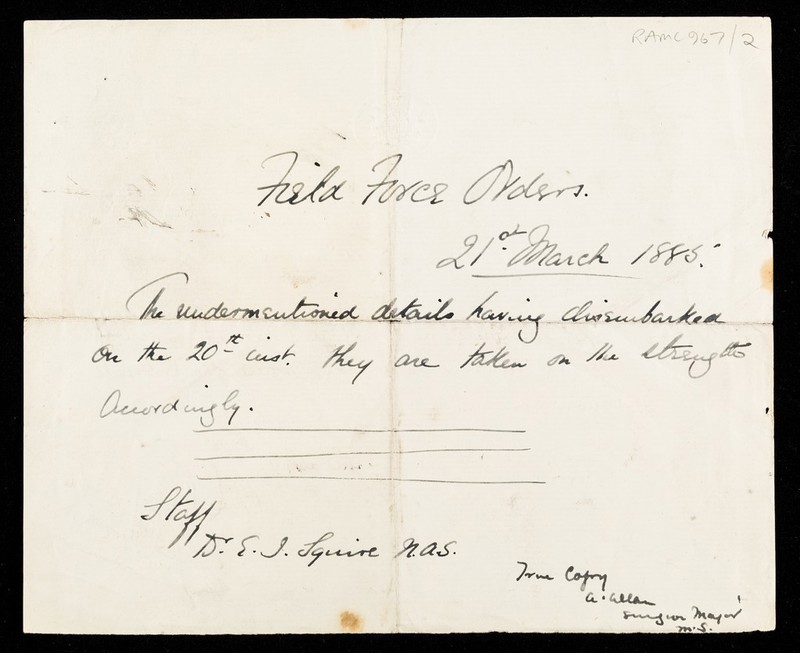 RAMC 967/2
Field Force Orders.
21st March 1885.
The undermentioned details having disembarked
on the 20th inst. they are taken on the strength
accordingly.
Staff
Dr. E. J. Squire N.A.S.
True Copy
A. Allan
Surgeon Major
M.S.